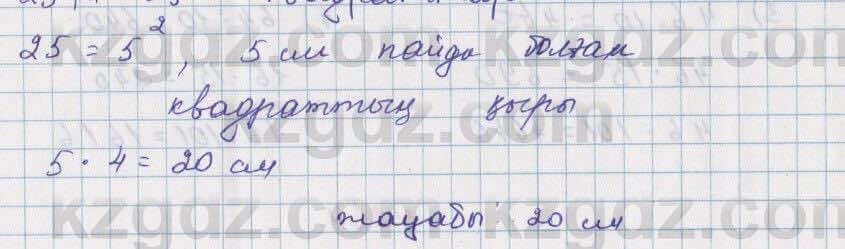 25 = 5², 5 см пайда болған
квадраттың қыры
5 · 4 = 20 см
жауабы 20 см
kzgdz.com